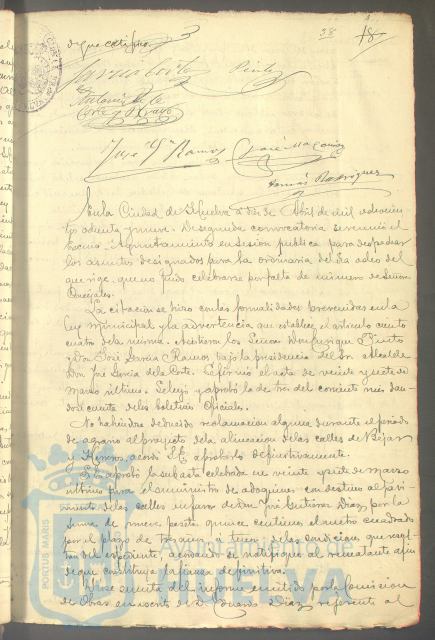 de que certifico
38 18
García Cortés Pinto
Antonio de la
Corte y Bravo
José Gª Ramos José Mª
Tomás Rodríguez
En la Ciudad de Huelva a diez de Abril de mil ochocien
tos ochenta y nueve. De segunda convocatoria se reunió el
Excmo. Ayuntamiento en sesión pública para despachar
los asuntos designados para la ordinaria del día ocho del
que rige, que no pudo celebrarse por falta de número de Señores
Concejales.
La citación se hizo con las formalidades prevenidas en la
Ley Municipal y la advertencia que establece el artículo ciento
cuatro de la misma. Asistieron los Señores Don Enrique Pinto
y Don José García Ramos bajo la presidencia del Sr. Alcalde
Don José García de la Corte. Se firmó el acta de veinte y siete de
Marzo último. Se leyó y aprobó la de tres del corriente mes dan
dose cuenta de los boletines Oficiales.
No habiéndose deducido reclamación alguna durante el periodo
de agravio al proyecto de la alineación de las calles de Bejar
y acordó S.E. aprobarlo definitivamente.
Se aprobó la subasta celebrada en veinte y siete de marzo
último para el suministro de adoquines con destino al pavi
mento de las calles a favor de Don José Gutierrez Diaz, por la
suma de nueve pesetas quince céntimos el metro cuadrado
por el plazo de y a tenor de las condiciones que resul
tan del expediente, acordándose se notifique al rematante a fin
de que constituya la fianza definitiva.
Diose cuenta del informe emitido por la Comisión
de Obras en escrito de D. Eduardo Diaz referente al
PORTUS MARIS
AYUNTAMIENTO DE
HUELVA